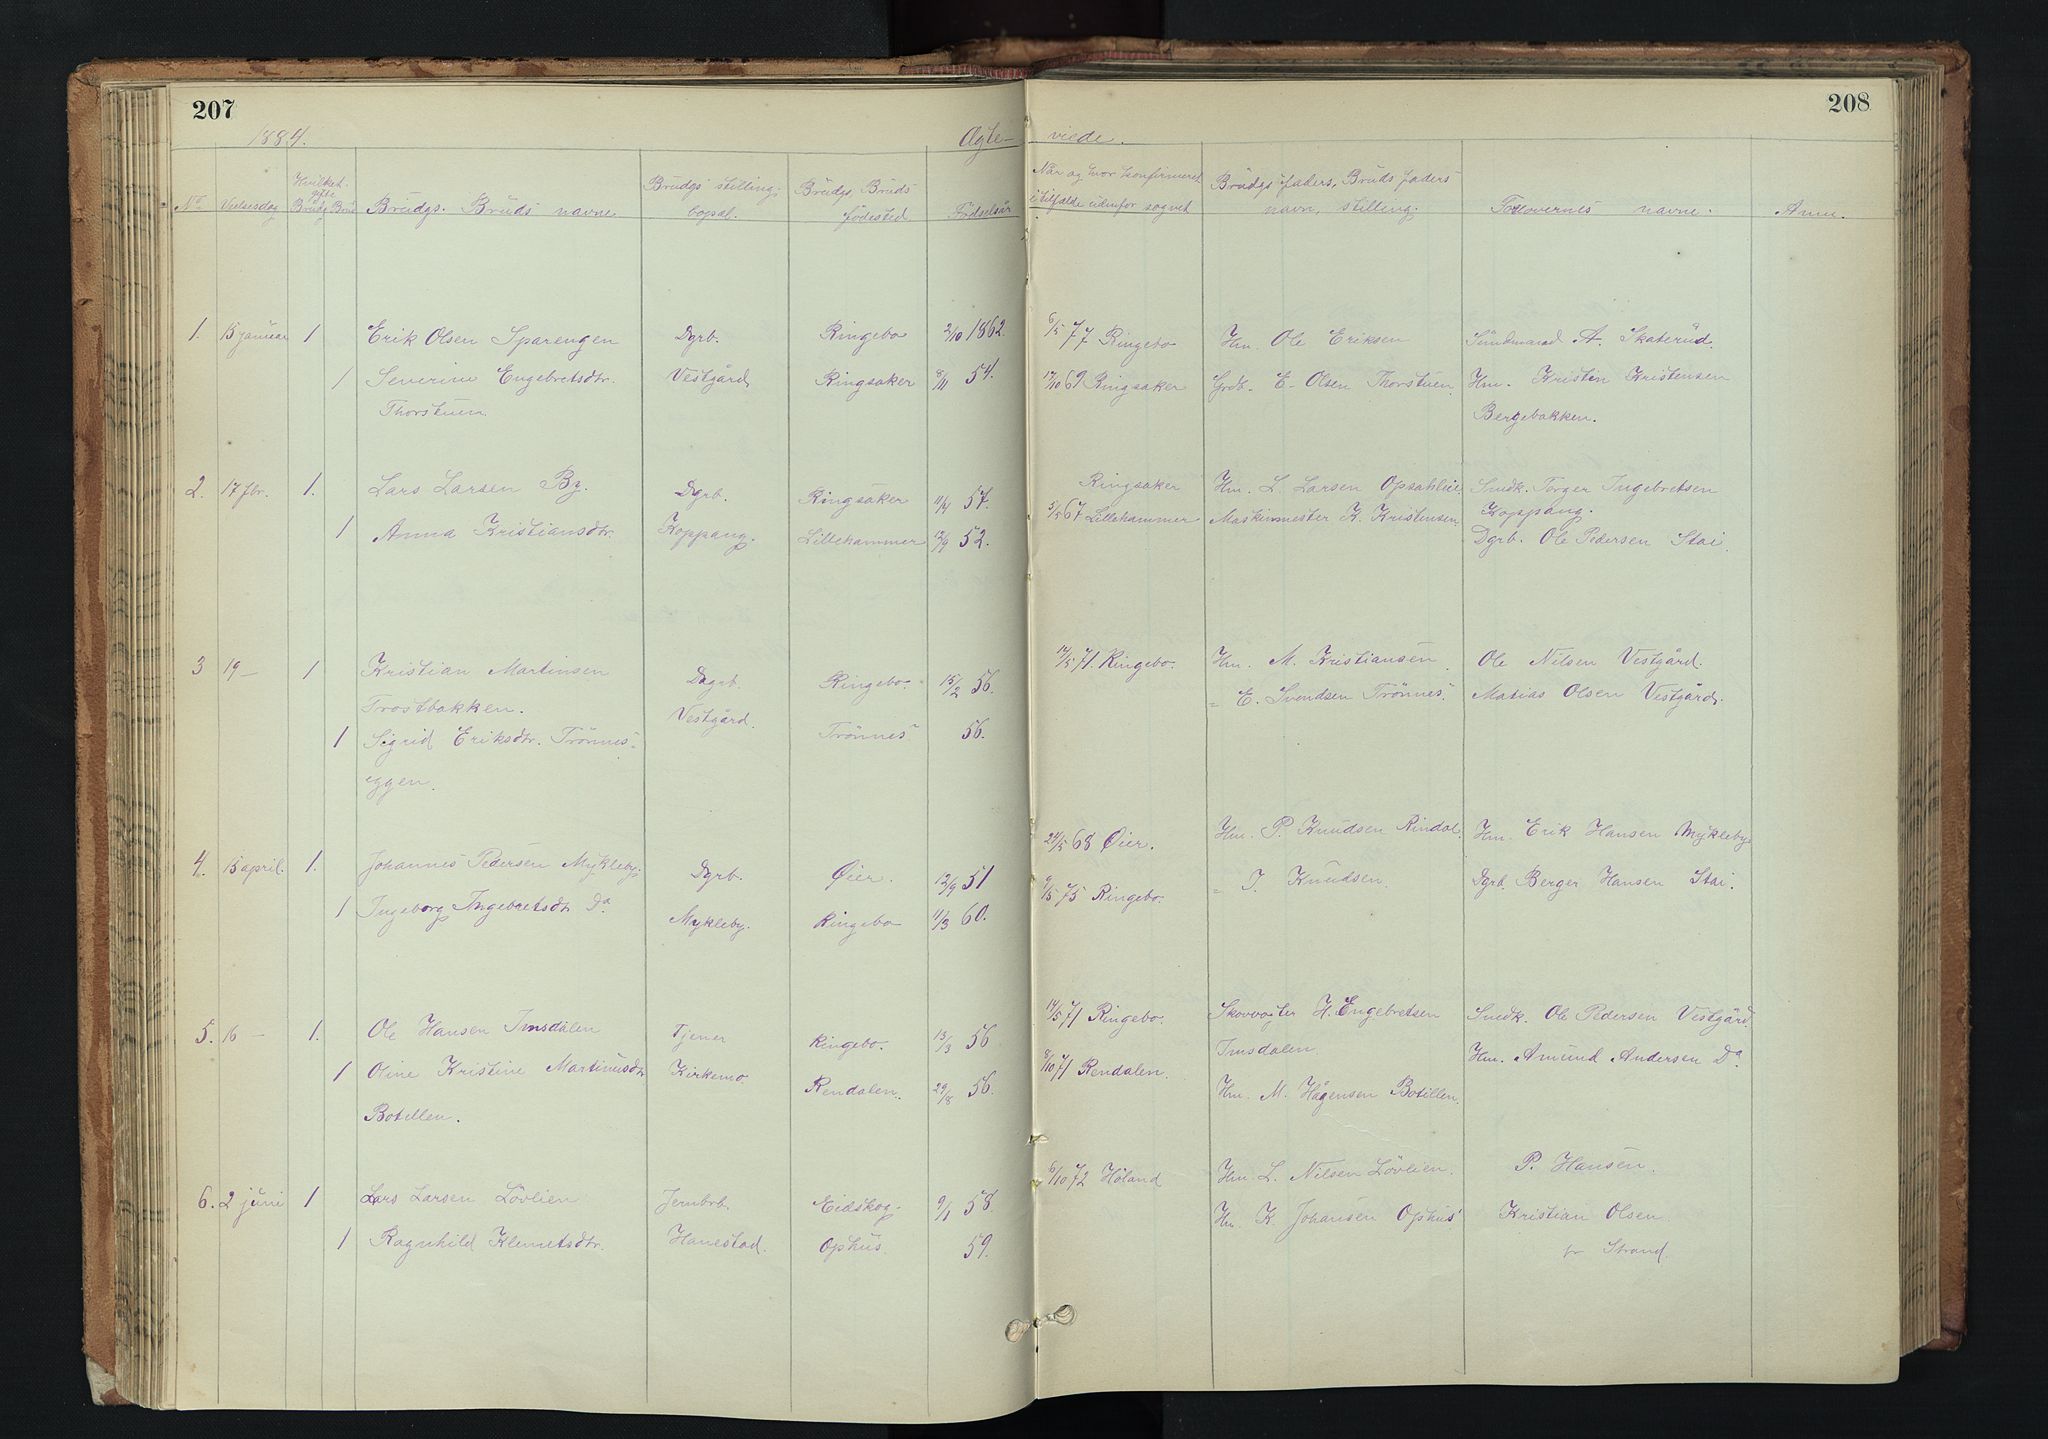 207
208
1884.
Ægte-
viede.
No
Vielsesdag
Hvilket gifte
Brudg. Brud
Brudgs. Bruds navne
Brudgs stilling, bopæl.
Brudgs, Bruds fødested
Fødselsår
Når og hvor konfirmeret i tilfælde udenfor sognet
Brudgs faders, Bruds faders navn, stilling.
Forlovernes navne.
Anm.
1. 15 januar 1 Erik Olsen Sparengen Dgrb. Ringebo 2/10 1862. 6/5 77 Ringebo Hm. Ole Eriksen A. Skaterud.
1 Severine Engebretsdtr. Vestgård Ringsaker 8/11 54. 17/10 69 Ringsaker Grdb. E. Olsen Thorstuen Hm. Kristin Kristensen
Thorstuen Bergebakken.
2. 17 fbr. 1. Lars Larsen By. Dgrb. Ringsaker 11/4 57. Ringsaker Hm. L. Larsen Opsahlie Smdk. Torger Ingebretsen
Koppang.
1 Anna Kristiansdtr. Koppang. Lillehammer 12/9 52. 5/5 67 Lillehammer Maskinmester K. Kristensen Dgrb. Ole Pedersen Stai.
3 19 — 1 Kristian Martinsen Dgrb. Ringebo. 15/2 56. 14/5 71. Ringebo. Hm. M. Kristiansen Ole Nilsen Vestgård.
Trostbakken. Vestgård. = E. Svendsen Trönnes. Matias Olsen Vestgård.
1 Sigrid Eriksdtr. Trönnes- Trönnes 56.
eggen.
4. 15 april. 1. Johannes Pedersen Mykleby. Dgrb. Øier. 12/9 51 24/5 68 Øier. Hm. P. Knudsen Rindal. Hm. Erik Hansen Mykleby
1 Ingeborg Ingebretsdtr Do Mykleby. Ringebo 11/3 60. 9/5 75 Ringebo. = I. Knudsen. Dgrb. Berger Hansen Stai.
5. 16 — 1. Ole Hansen Imsdalen Tjener Ringebo. 13/3 56 14/5 71 Ringebo. Skovvogter H. Engebretsen Smdk. Ole Pedersen Vestgård
Imsdalen
1 Oline Kristine Martinusdtr Kirkemo Rendalen. 29/8 56. 8/10 71 Rendalen. Hm. M. Hågensen Botillen. Hm. Amund Andersen Do
Botillen.
6. 2 juni 1 Lars Larsen Lövlien Jernbrb. Eidskog. 9/1 58. 6/10 72 Höland Hm. L. Nilsen Lövlien. P. Hansen.
1 Ragnhild Klemetsdtr. Hanestad. Ophus. 59. Hm. K. Johansen Ophus Kristian Olsen
Strand.